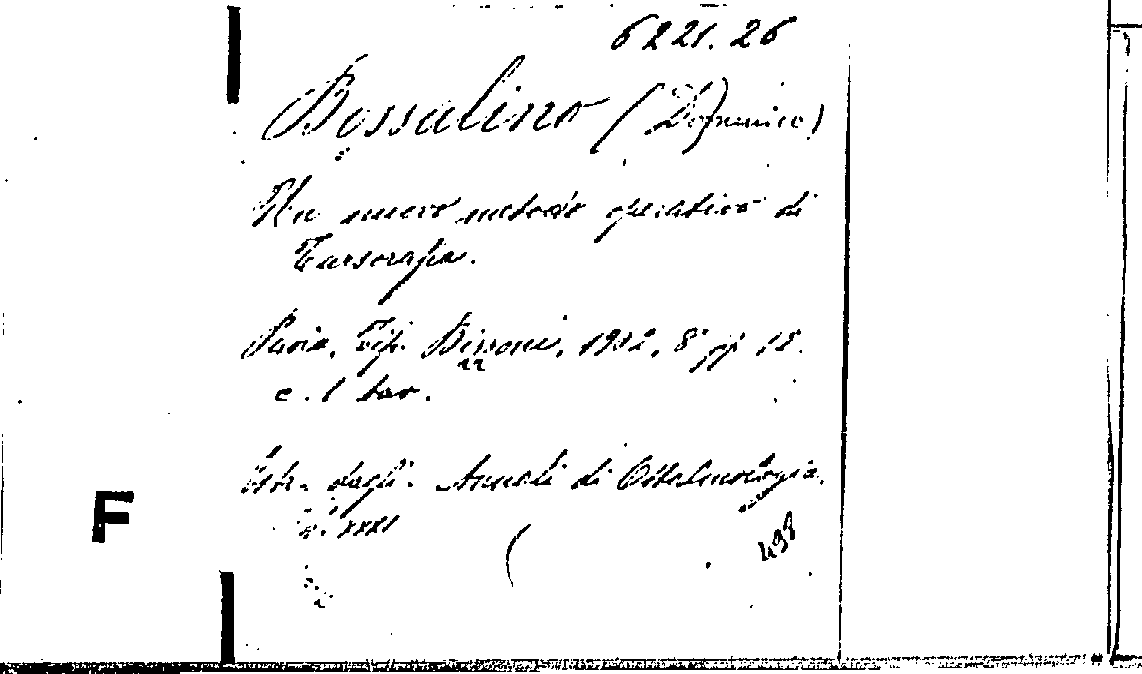 6221.26
Bossalino (Domenico)
Un nuovo metodo operativo di
Tarsorafia.
Pavia, Tip. Bizzoni, 1902, 8° pp 18.
c. 1 tav.
Estr. dagli. Annali di Ottalmologia.
XXXI
498
F